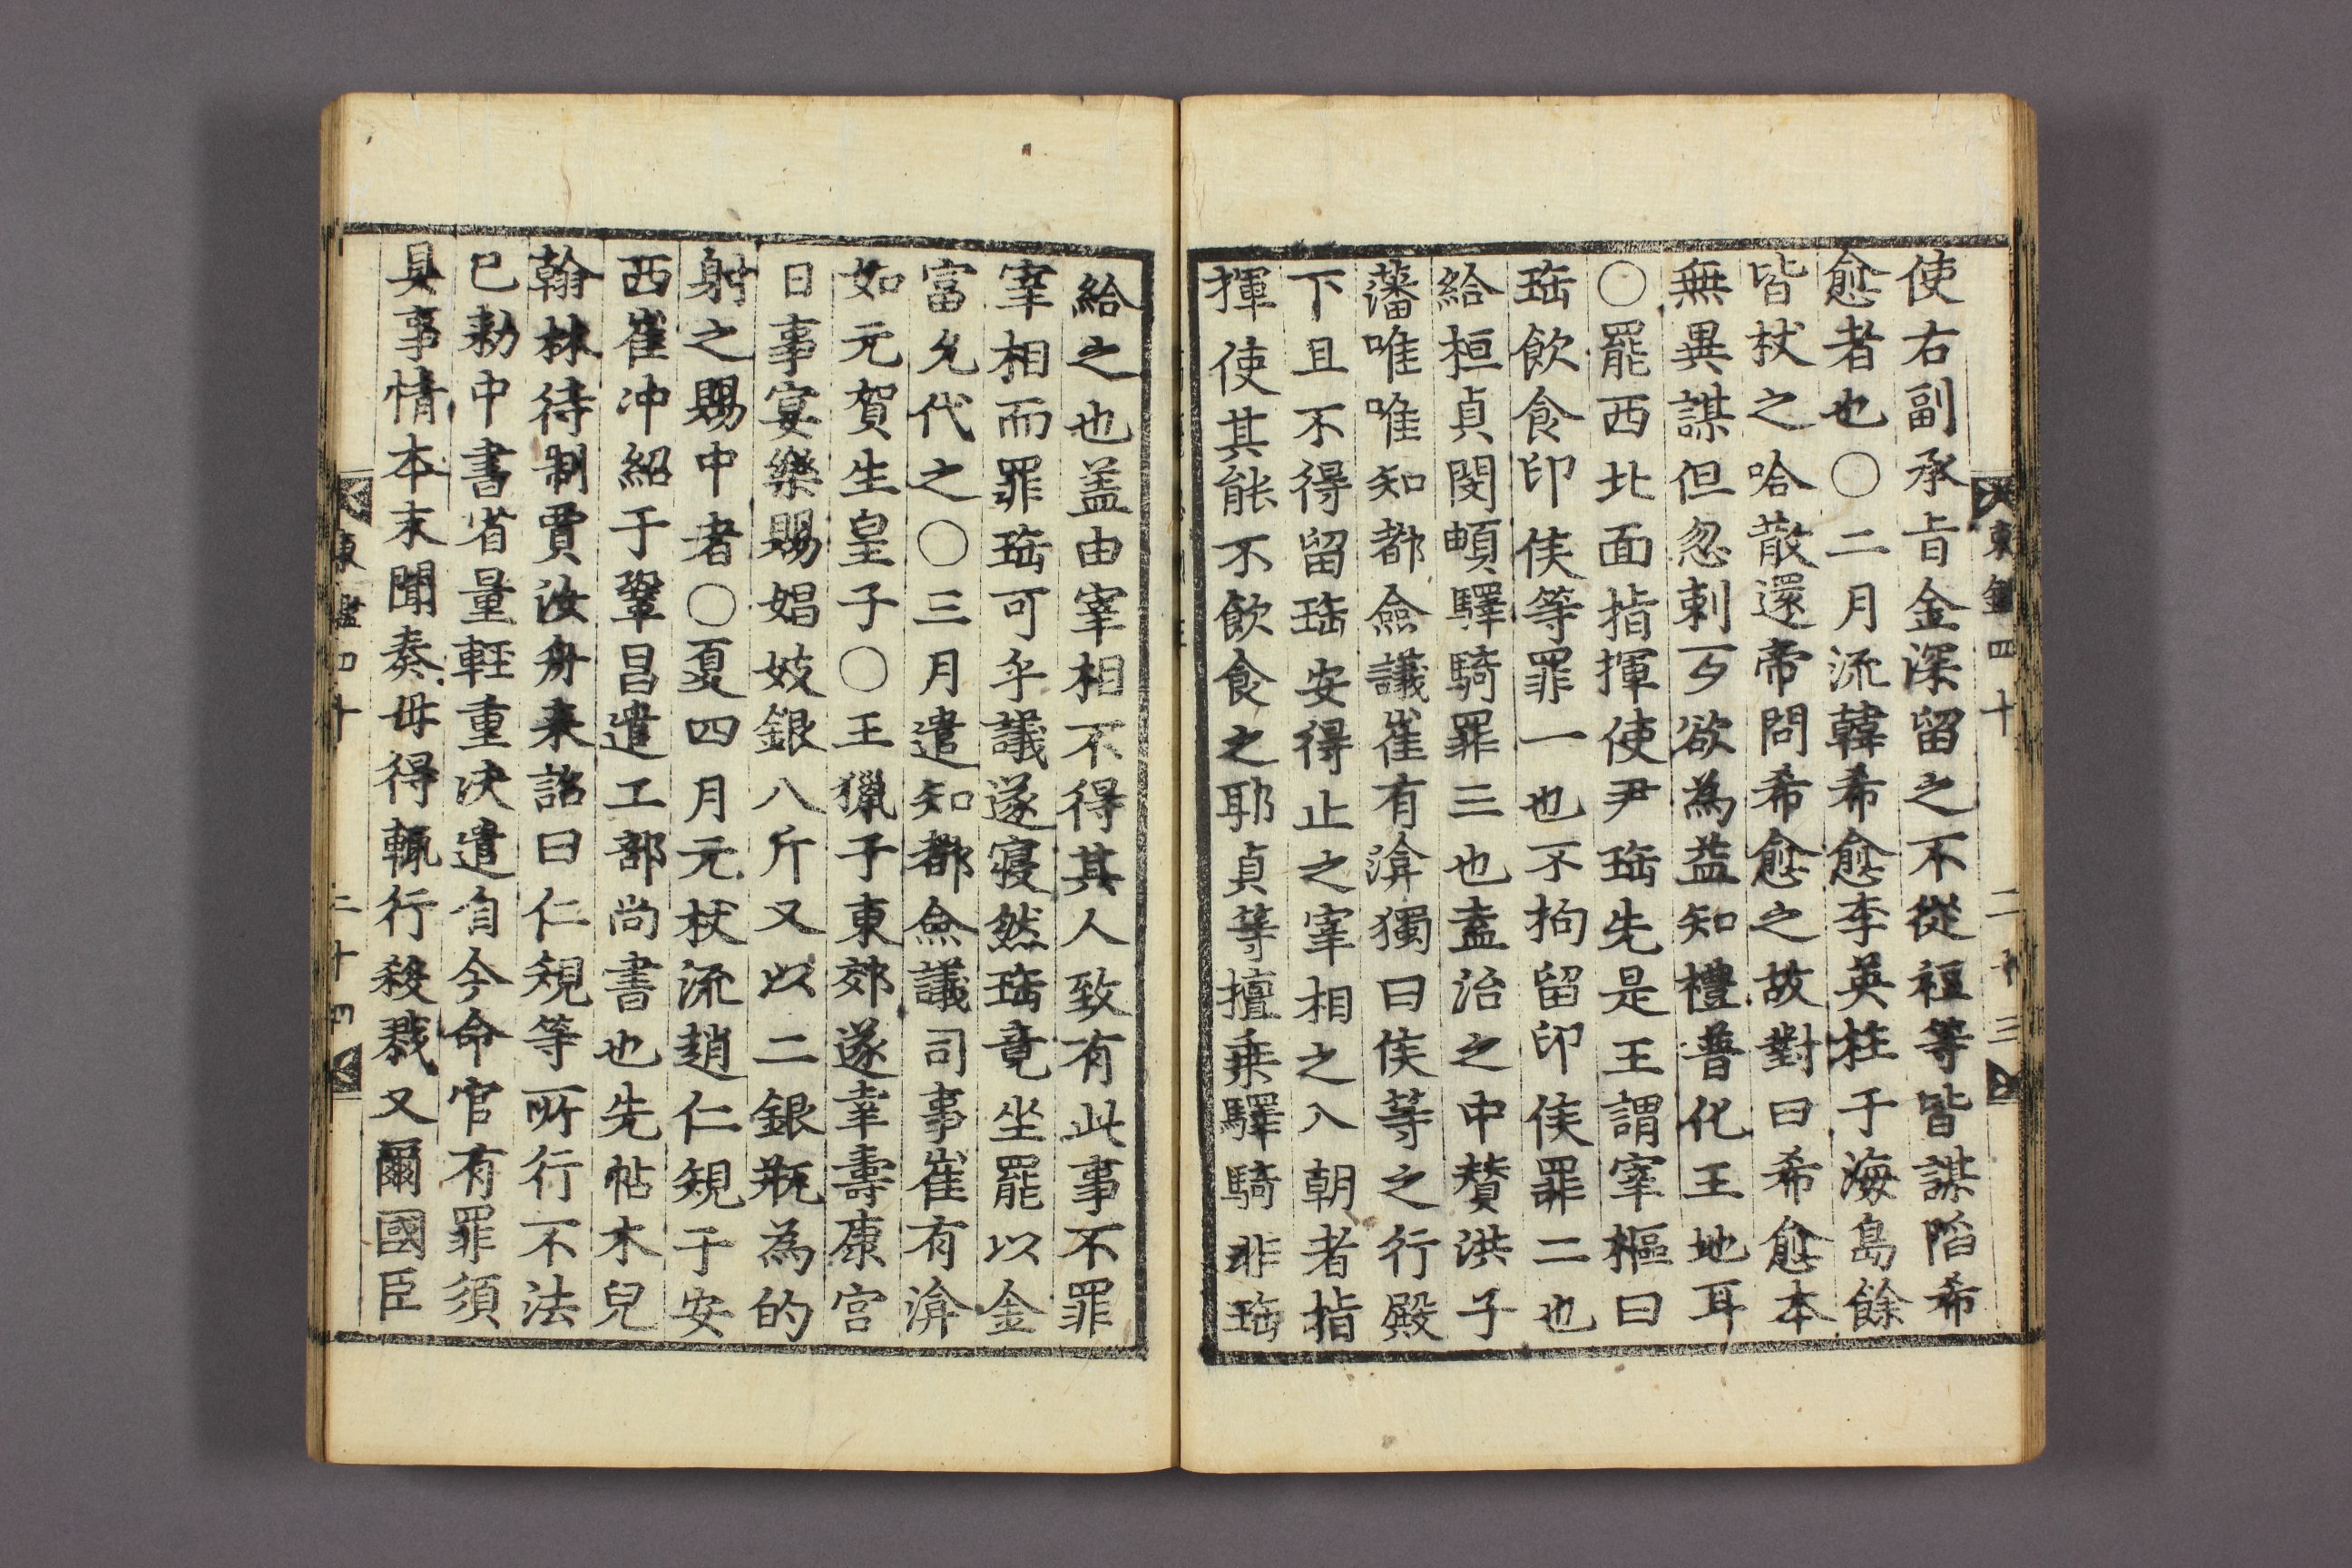 東鑑四十 二十三
使右副承旨金深留之不從禋等皆謀陷希
愈者也○二月流韓希愈李英柱于海島餘
皆杖之哈散還帝問希愈之故對曰希愈本
無異謀但忽剌歹欲為益知禮普化王地耳
○罷西北面指揮使尹珤先是王謂宰樞曰
珤飮食印侯等罪一也不拘留印侯罪二也
給桓貞閔頔驛騎罪三也盍治之中賛洪子
藩唯唯知都僉議崔有渰獨曰侯等之行殿
下且不得留珤安得止之宰相之入朝者指
揮使其能不飮食之耶貞等擅乗驛騎非珤
給之也盖由宰相不得其人致有此事不罪
宰相而罪珤可乎議遂寝然珤竟坐罷以金
富允代之○三月遣知都僉議司事崔有渰
如元賀生皇子○王獵于東郊遂幸壽康宮
日事宴樂賜娼妓銀八斤又以二銀瓶為的
射之賜中者○夏四月元杖流趙仁規于安
西崔冲紹于鞏昌遣工部尚書也先帖木兒
翰林待制賈汝舟来詔曰仁規等所行不法
已勑中書省量輕重決遣自今命官有罪須
具事情本末聞奏毋得輒行殺戮又爾國臣
東鑑四十 二十四